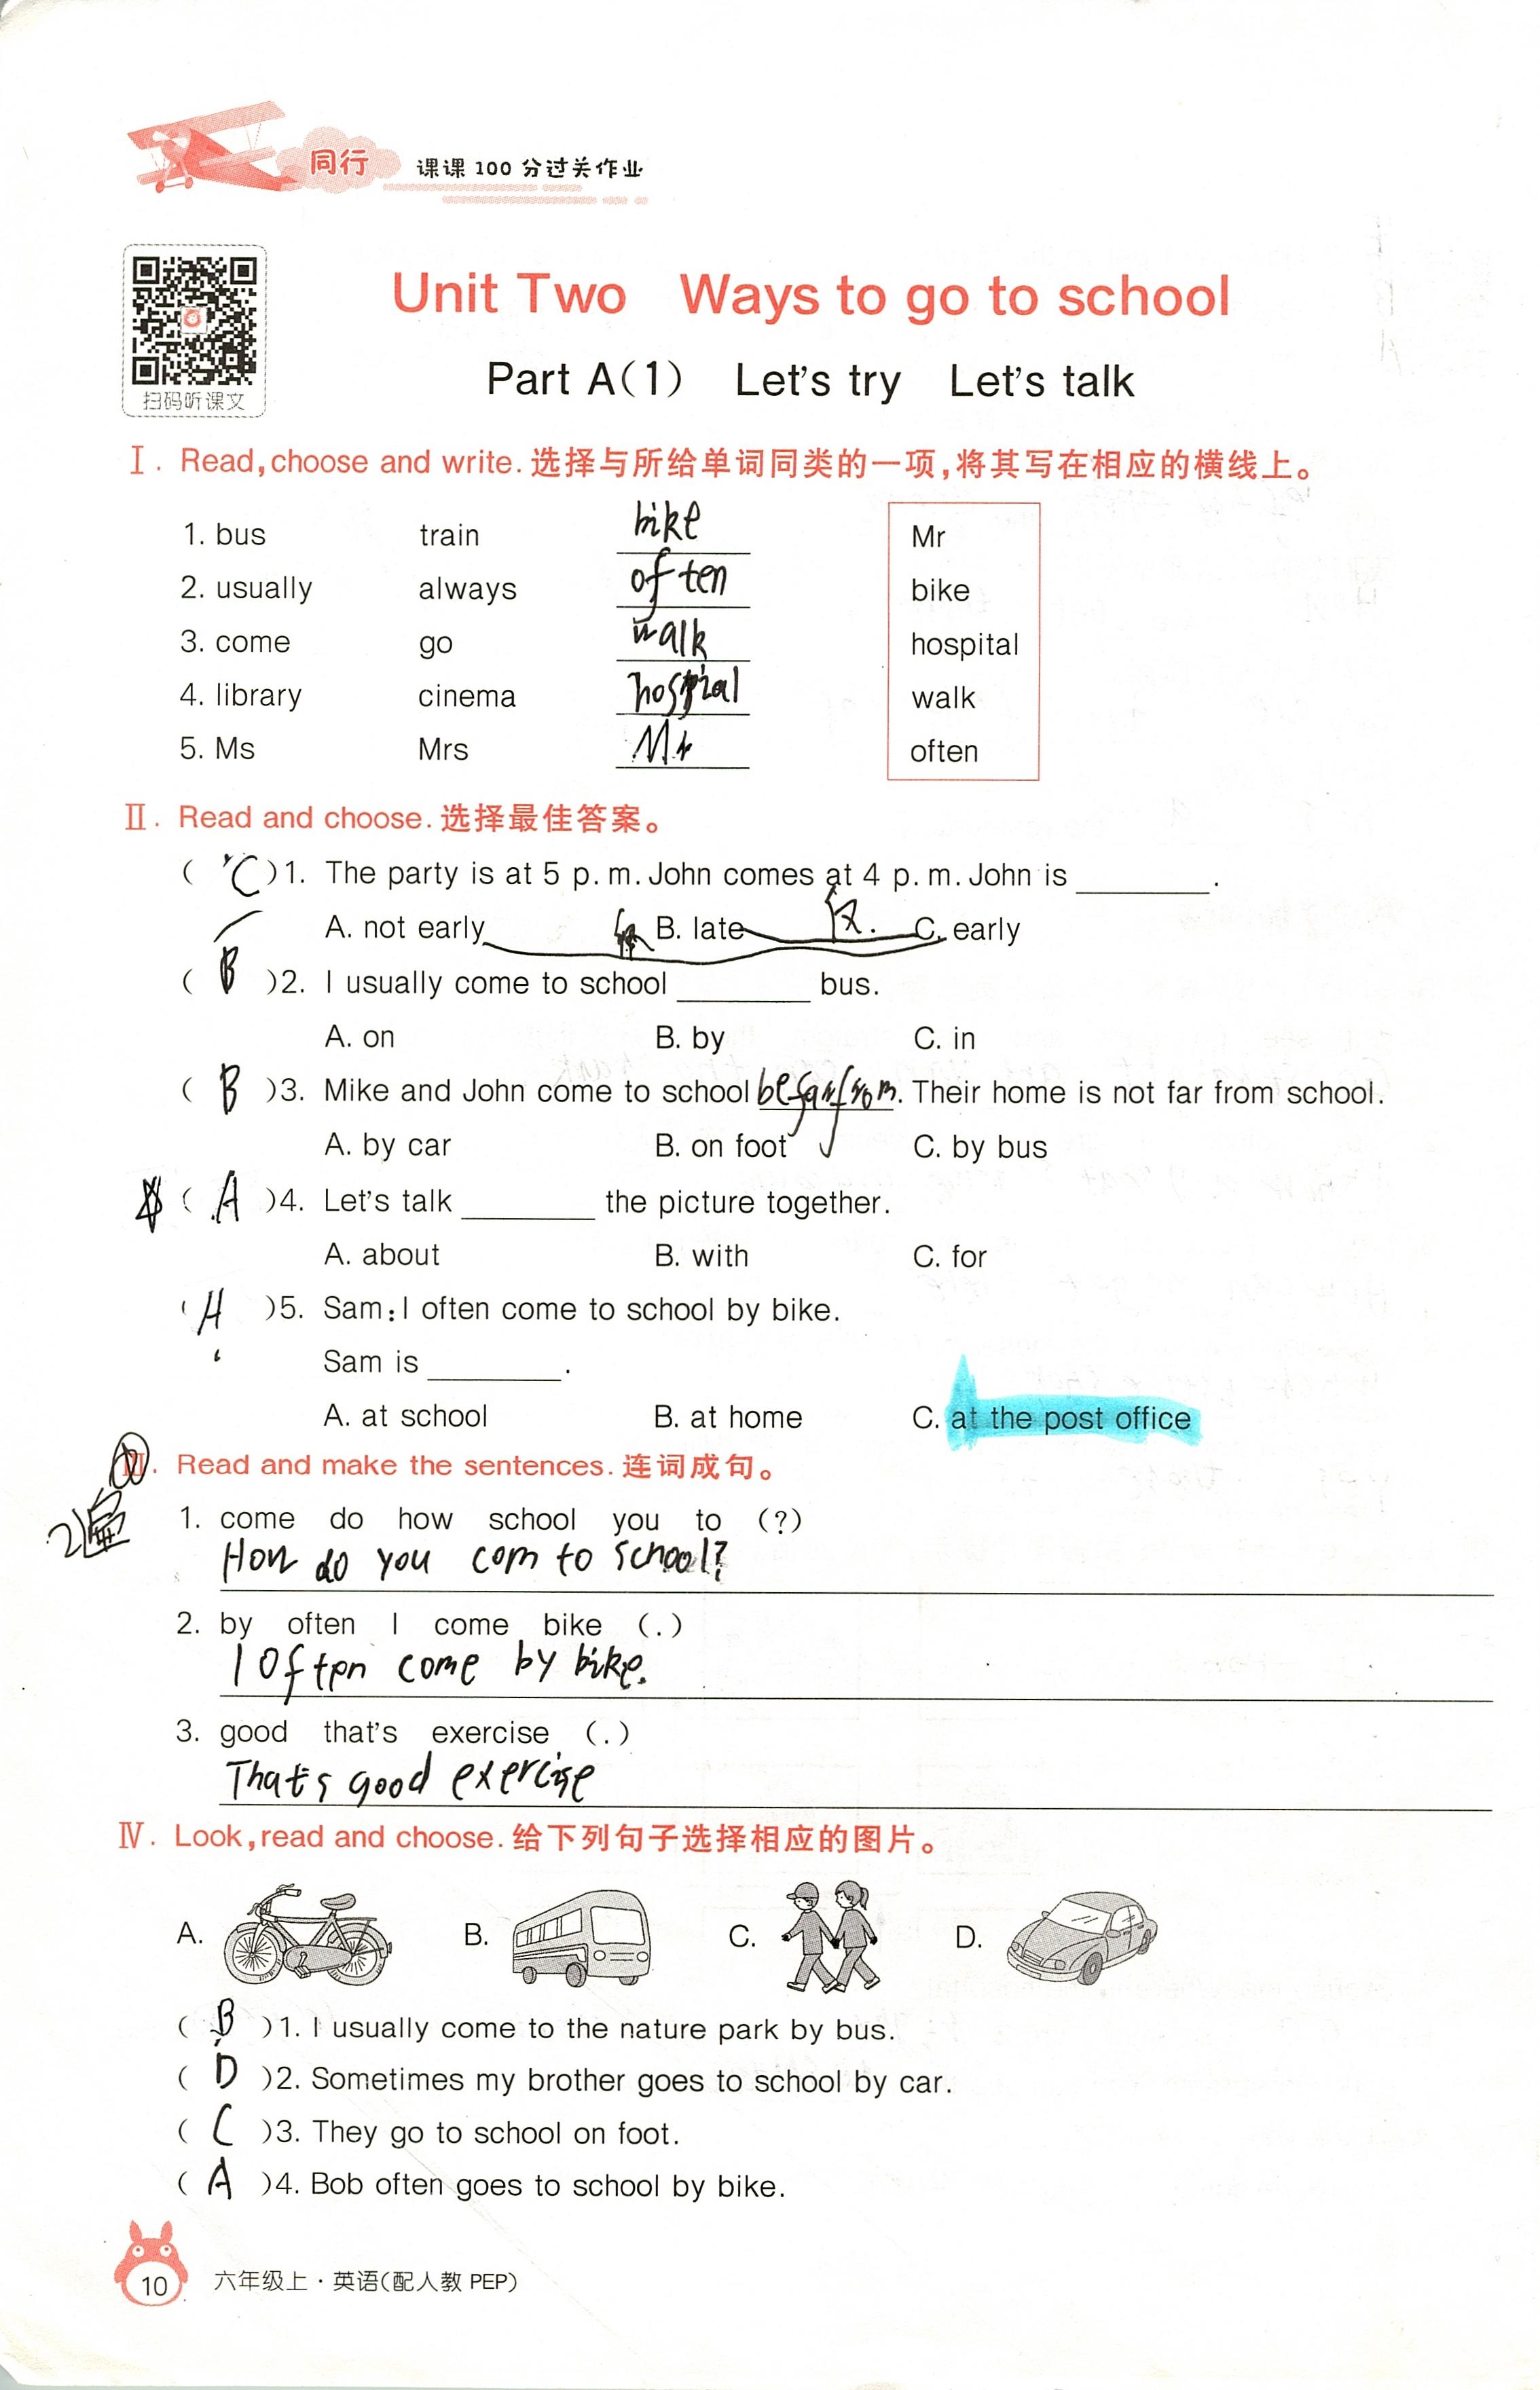 同行 课课100分过关作业
扫码听课文
Unit Two Ways to go to school
Part A(1) Let's try Let's talk
Ⅰ. Read, choose and write. 选择与所给单词同类的一项,将其写在相应的横线上。
1. bus train bike Mr
2. usually always often bike
3. come go walk hospital
4. library cinema walk
5. Ms Mrs Mr often
Ⅱ. Read and choose. 选择最佳答案。
( C )1. The party is at 5 p.m. John comes at 4 p.m. John is ________.
A. not early B. late 反. C. early
( B )2. I usually come to school ________ bus.
A. on B. by C. in
( B )3. Mike and John come to school be far from. Their home is not far from school.
A. by car B. on foot C. by bus
( A )4. Let's talk ________ the picture together.
A. about B. with C. for
( A )5. Sam: I often come to school by bike.
Sam is ________.
A. at school B. at home C. at the post office
Ⅲ. Read and make the sentences. 连词成句。
2遍
1. come do how school you to (?)
How do you com to school?
2. by often I come bike (.)
I often come by bike.
3. good that's exercise (.)
That's good exercise
Ⅳ. Look, read and choose. 给下列句子选择相应的图片。
A. B. C. D.
( B )1. I usually come to the nature park by bus.
( D )2. Sometimes my brother goes to school by car.
( C )3. They go to school on foot.
( A )4. Bob often goes to school by bike.
10 六年级上·英语(配人教 PEP)